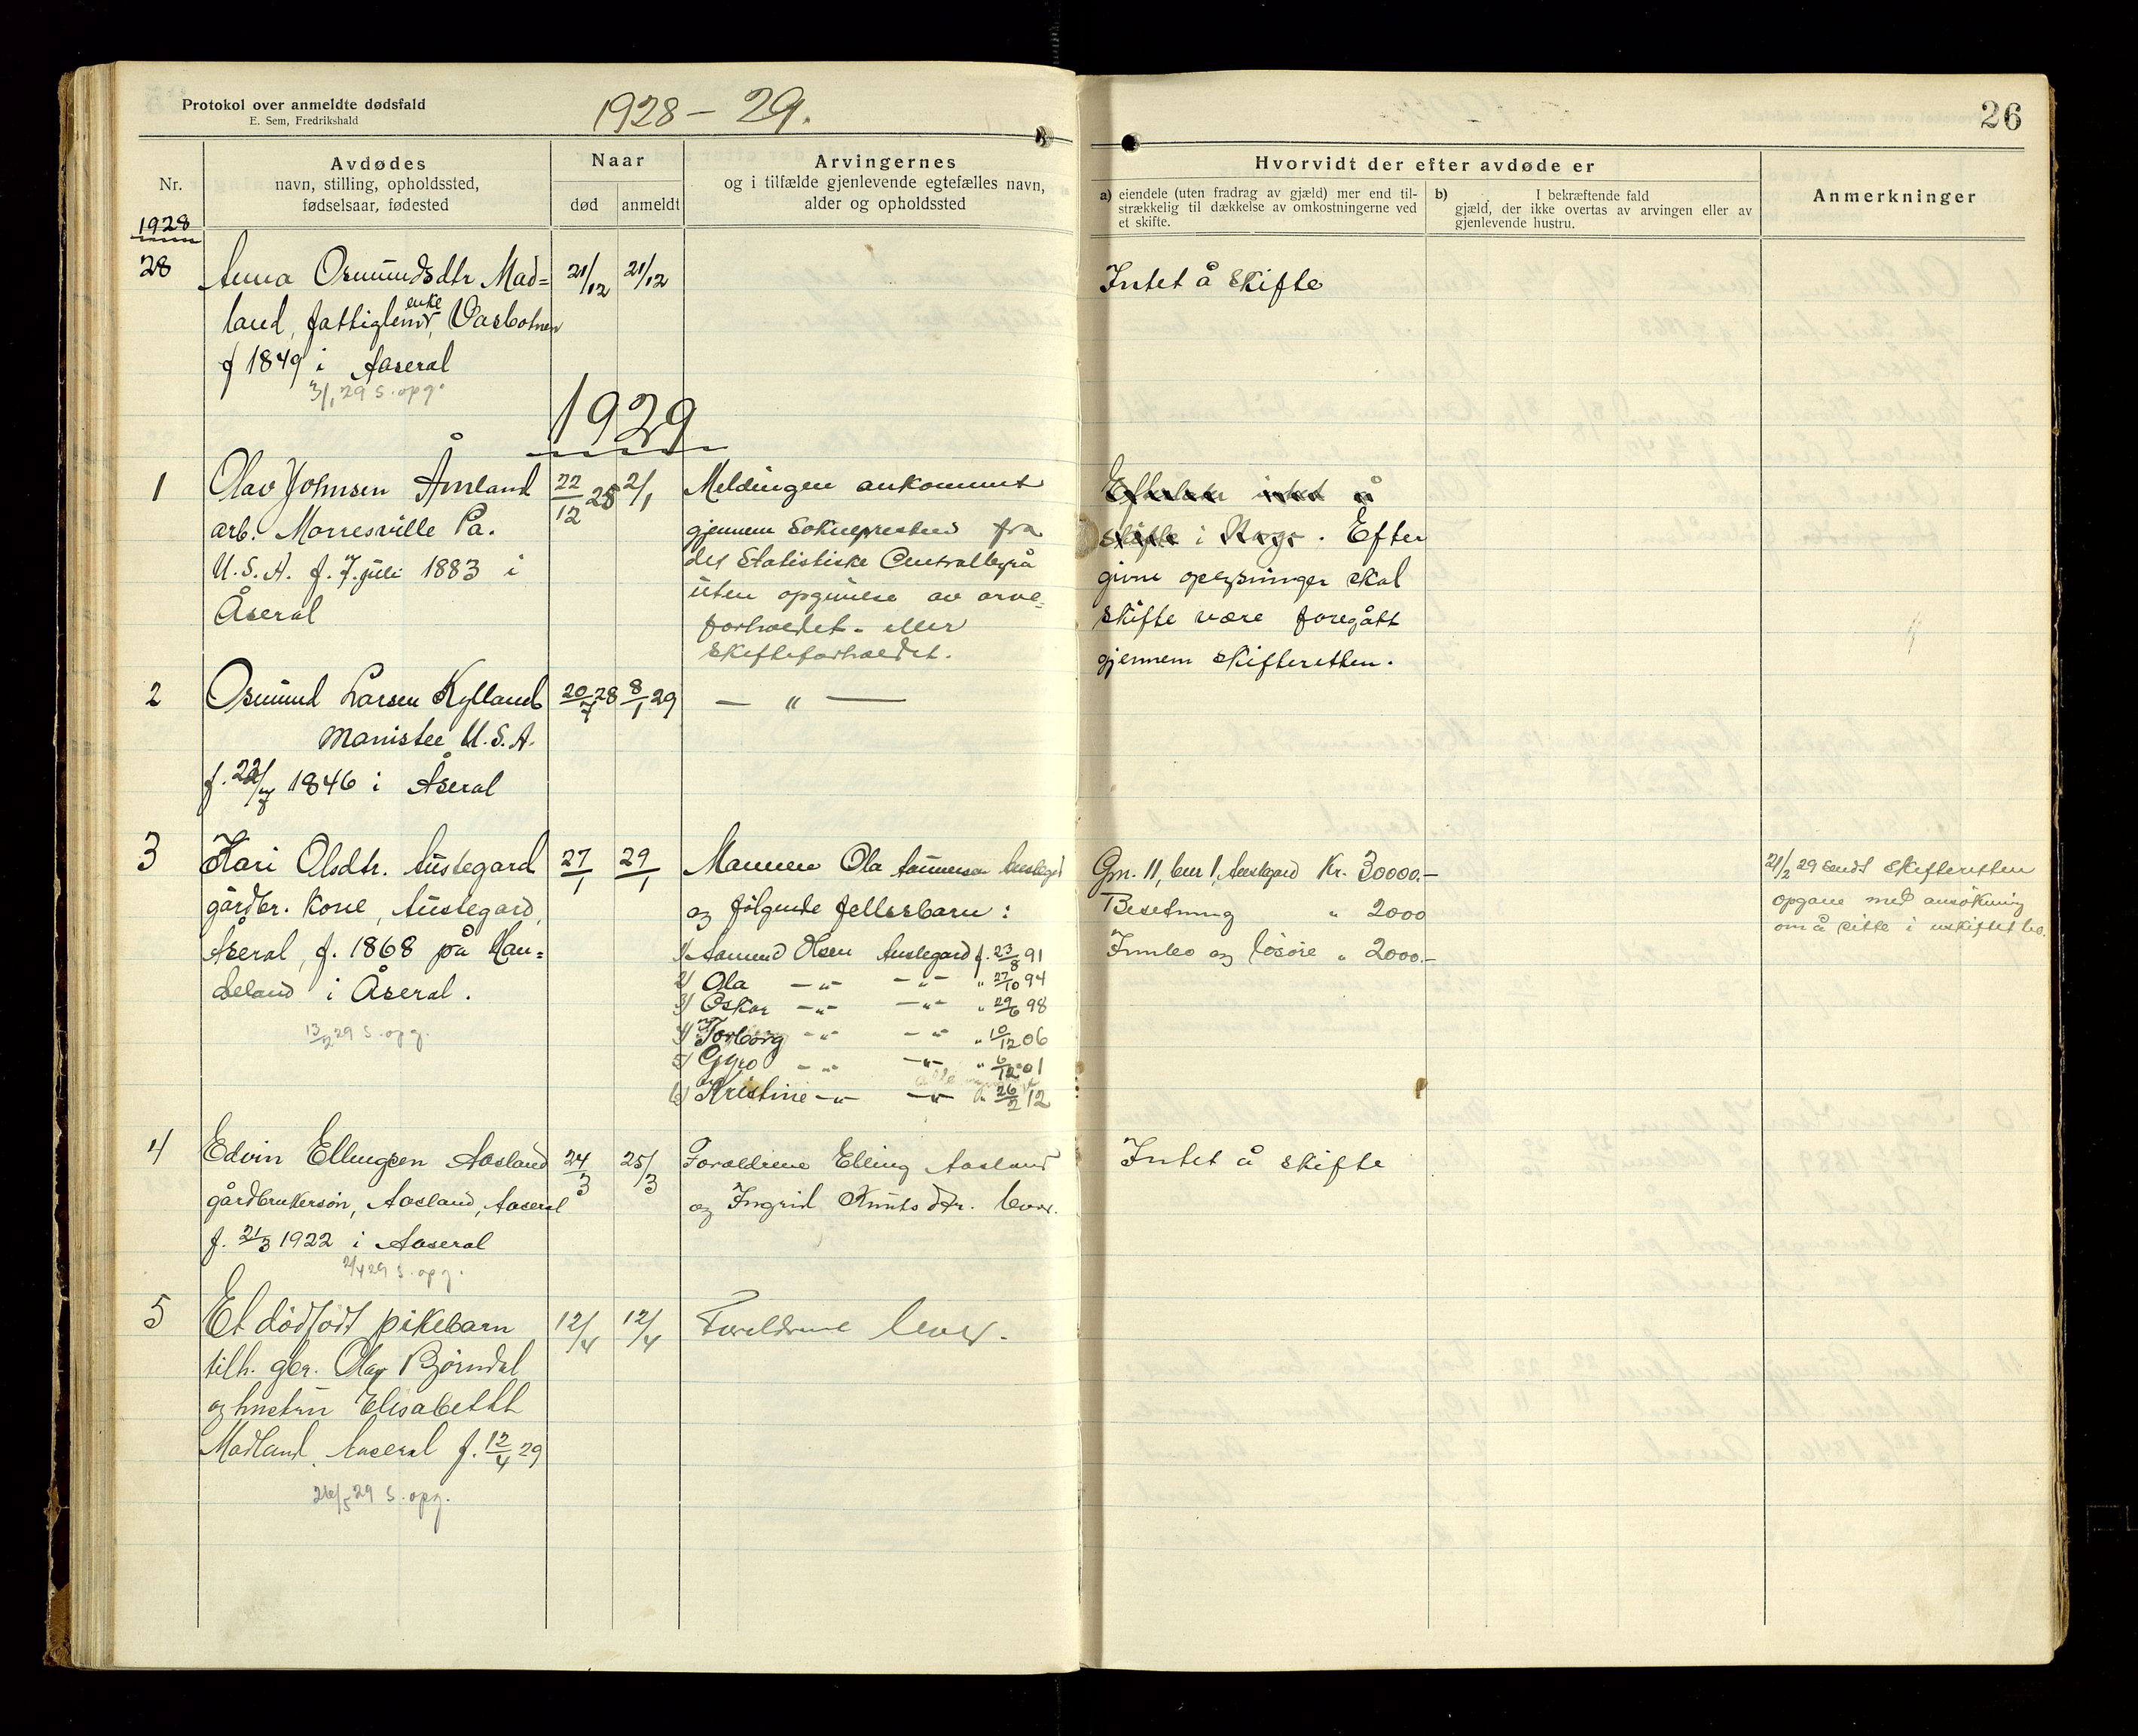 Protokol over anmeldte dødsfald
E. Sem, Fredrikshald
1928 – 29.
26
Nr.
Avdødes
navn, stilling, opholdssted,
fødselsaar, fødested
Naar
død
anmeldt
Arvingernes
og i tilfælde gjenlevende egtefælles navn,
alder og opholdssted
Hvorvidt der efter avdøde er
a) eiendele (uten fradrag av gjæld) mer end til-
strækkelig til dækkelse av omkostningerne ved
et skifte.
b) I bekræftende fald
gjæld, der ikke overtas av arvingen eller av
gjenlevende hustru.
Anmerkninger
1928
28
Anna Osmundsdtr Mad=
land, fattiglem, enke Vasbotnen
f 1849 i Aaseral
3/1 29 S. opg.
21/12
21/12
Intet å skifte
1929
1
Olav Johnsen Åmland
arb. Morresville Pa.
U.S.A. f. 7. juli 1883 i
Åseral
22/12 28
2/1
Meldingen ankommet
gjennem Soknepresten fra
det Statistiske Centralbyrå
uten opgivelse av arve=
forholdet. eller
skifteforholdet.
Efterlater intet å
skifte i Norge. Efter
givne oplysninger skal
skifte være foregått
gjennem skifteretten.
2
Osmund Larsen Kylland
Manistee U.S.A.
f. 22/7 1846 i Åseral
20/7 28
8/1 29
— " —
3
Kari Olsdtr. Austegard
gårdbr. kone, Austegard,
Åseral, f. 1868 på Kan=
deland i Åseral.
13/2 29 S. opg.
27/1
29/1
Mannen Ola Aamundsen Austegard
og følgende fellesbarn:
1) Aamund Olsen Austegard f. 23/8 91
2) Ola —"— —"— " 27/10 94
3) Oskar —"— —"— " 29/6 98
4) Torborg —"— —"— " 10/12 06
5) Gyro —"— —"— " 6/12 01
6) Kristine —"— —"— " 26/2 12
Gm. 11, bnr 1, Austegard Kr. 30000.—
Besetning " 2000
Innbo og løsøre " 2000.—
21/2 29 sendt skifteretten
opgave med ansøkning
om å sitte i uskiftet bo.
4
Edvin Ellingsen Aasland
gårdbrukersøn, Aasland, Aaseral
f. 21/3 1922 i Aaseral
2/4 29 S. opg.
24/3
25/3
Foreldrene Elling Aasland
og Ingrid Knutsdtr. lever.
Intet å skifte
5
Et dødfødt pikebarn
tilh. gbr. Olav Bjørndal
og hustru Elisabetht
Madland, Aaseral f. 12/4 29
26/5 29 S. opg.
12/4
12/4
Foreldrene lever.